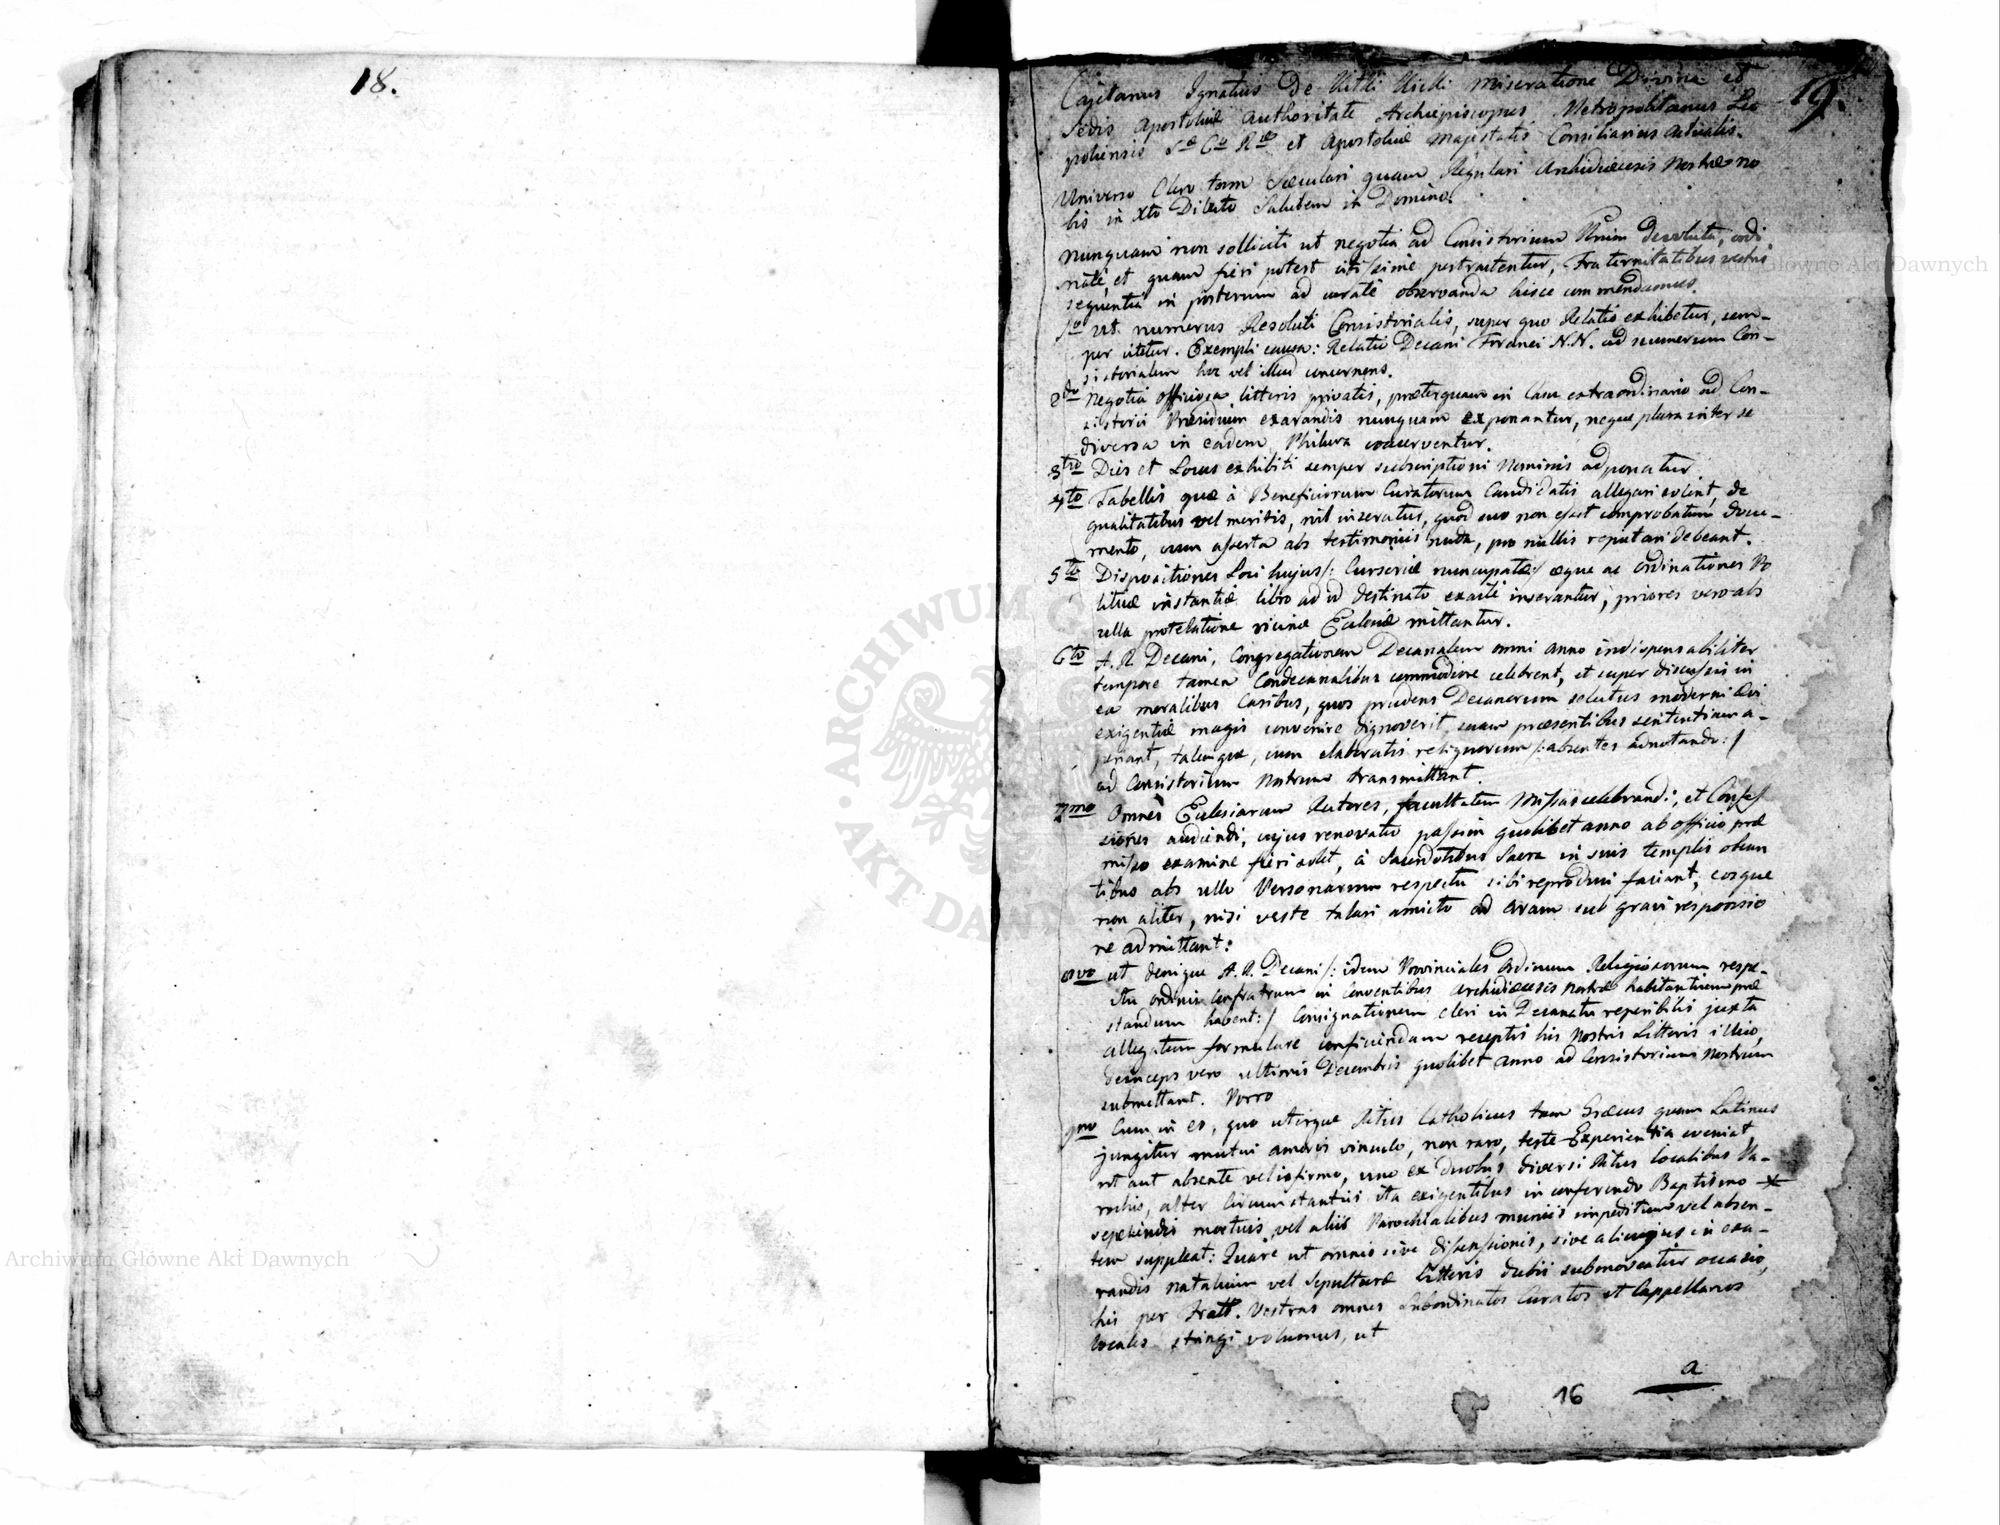 18.
19.
Cajetanus Ignatius De Kitki Kicki Miseratione Divina et
Sedis Apostolicæ Authoritate Archiepiscopus Metropolitanus Leo
poliensis Sæ Cæ Ræ et Apostolicæ Majestatis Consiliarius Actualis.
Universo Clero tam Sæculari quam Regulari Archidiæcesis Nostræ no
bis in Xto Dilecto Salutem in Domino.
Nunquam non solliciti ut negotia ad Consistorium Nrum devoluta, ordi
naté, et quam fieri potest citissimé pertractentur, Fraternitatibus vestris
sequentia in posterum ad curaté observanda hisce commendamus.
1o ut numerus Resoluti Consistorialis, super quo Relatio exhibetur, sem-
per citetur. Exempli causa: Relatio Decani Foranei N.N. ad numerum Con-
sistorialem hoc vel illud concernens.
2do Negotia officiosa litteris privatis, præterquam in Casu extraordinario ad Con-
sistorii Præsidium exarandis nunquam exponantur, neque plura inter se
diversa in eadem Philura coacerventur.
3tio Dies et Locus exhibiti semper subscriptioni Nominis adponatur
4to Tabellis quæ à Beneficiorum Curatorum Candidatis allegari solent, de
qualitatibus vel meritis, nil inseratur, quod suo non esset comprobatum docu-
mento, cum asserta abs testimoniis nuda, pro nullis reputari debeant.
5to Dispositiones Loci hujus /: Cursoriæ nuncupatæ :/ æque ac Ordinationes Po
liticæ instantiæ libro ad id destinato exacté inserantur, priores vero abs
ulla protelatione vicinæ Ecclesiæ mittantur.
6to A. R. Decani, Congregationem Decanalem omni anno indispensabiliter
tempore tamen Condecanalibus commodiore celebrent, et super discussis in
ea moralibus Casibus, quos prudens Decanorum selectus moderni ævi
exigentiæ magis convenire dignoverit, suam præsentibus sententiam a-
periant, talemque, cum elaboratis reliquorum /: absentes adnotando :/
ad Consistorium Nostrum transmittant.
7mo Omnes Ecclesiarum Rectores, facultatem Missas celebrandi, et Confes
siones audiendi, cujus renovatio passim quolibet anno ab officio præ
misso examine fieri solet, à Sacerdotibus Sacra in suis templis obeun
tibus abs ullo Personarum respectu sibi reproduci faciant, eosque
non aliter, nisi veste talari amicto ad aram sub gravi responsio
ne admittant:
8vo ut denique A. R. Decani /: idem Provinciales Ordinum Religiosorum respe-
ctu ordinis Confratrum in Conventibus Archidiæcesis Nostræ habitantium præ
standum habent :/ Consignationem cleri in Decanatu reperibilis juxta
allegatum formulare conficiendam receptis his Nostris Litteris illico,
deinceps vero ultimis Decembris quolibet anno ad Consistorium Nostrum
submittant. Porro
9no Cum in eo, quo uterque Ritus Catholicus tam Græcus quam Latinus
jungitur mutui amoris vinculo, non raro, teste Experientia eveniat
ut aut absente vel infirmo, uno ex duobus diversi Ritus localibus Pa-
rochis, alter Circumstantiis ita exigentibus in conferendo Baptismo
sepeliendis mortuis, vel aliis Parochialibus muniis impeditum vel absen-
tem suppleat: Quare ut omnis sive dissensionis, sive alicujus in exa-
randis natalium vel Sepulturæ Litteris dubii submoveatur occasio,
his per Fratt. Vestras omnes Subordinatos Curatos et Cappellanos
locales stringi volumus, ut
a
16
Archiwum Główne Akt Dawnych
Archiwum Główne Akt Dawnych
ARCHIWUM G
AKT DAWN